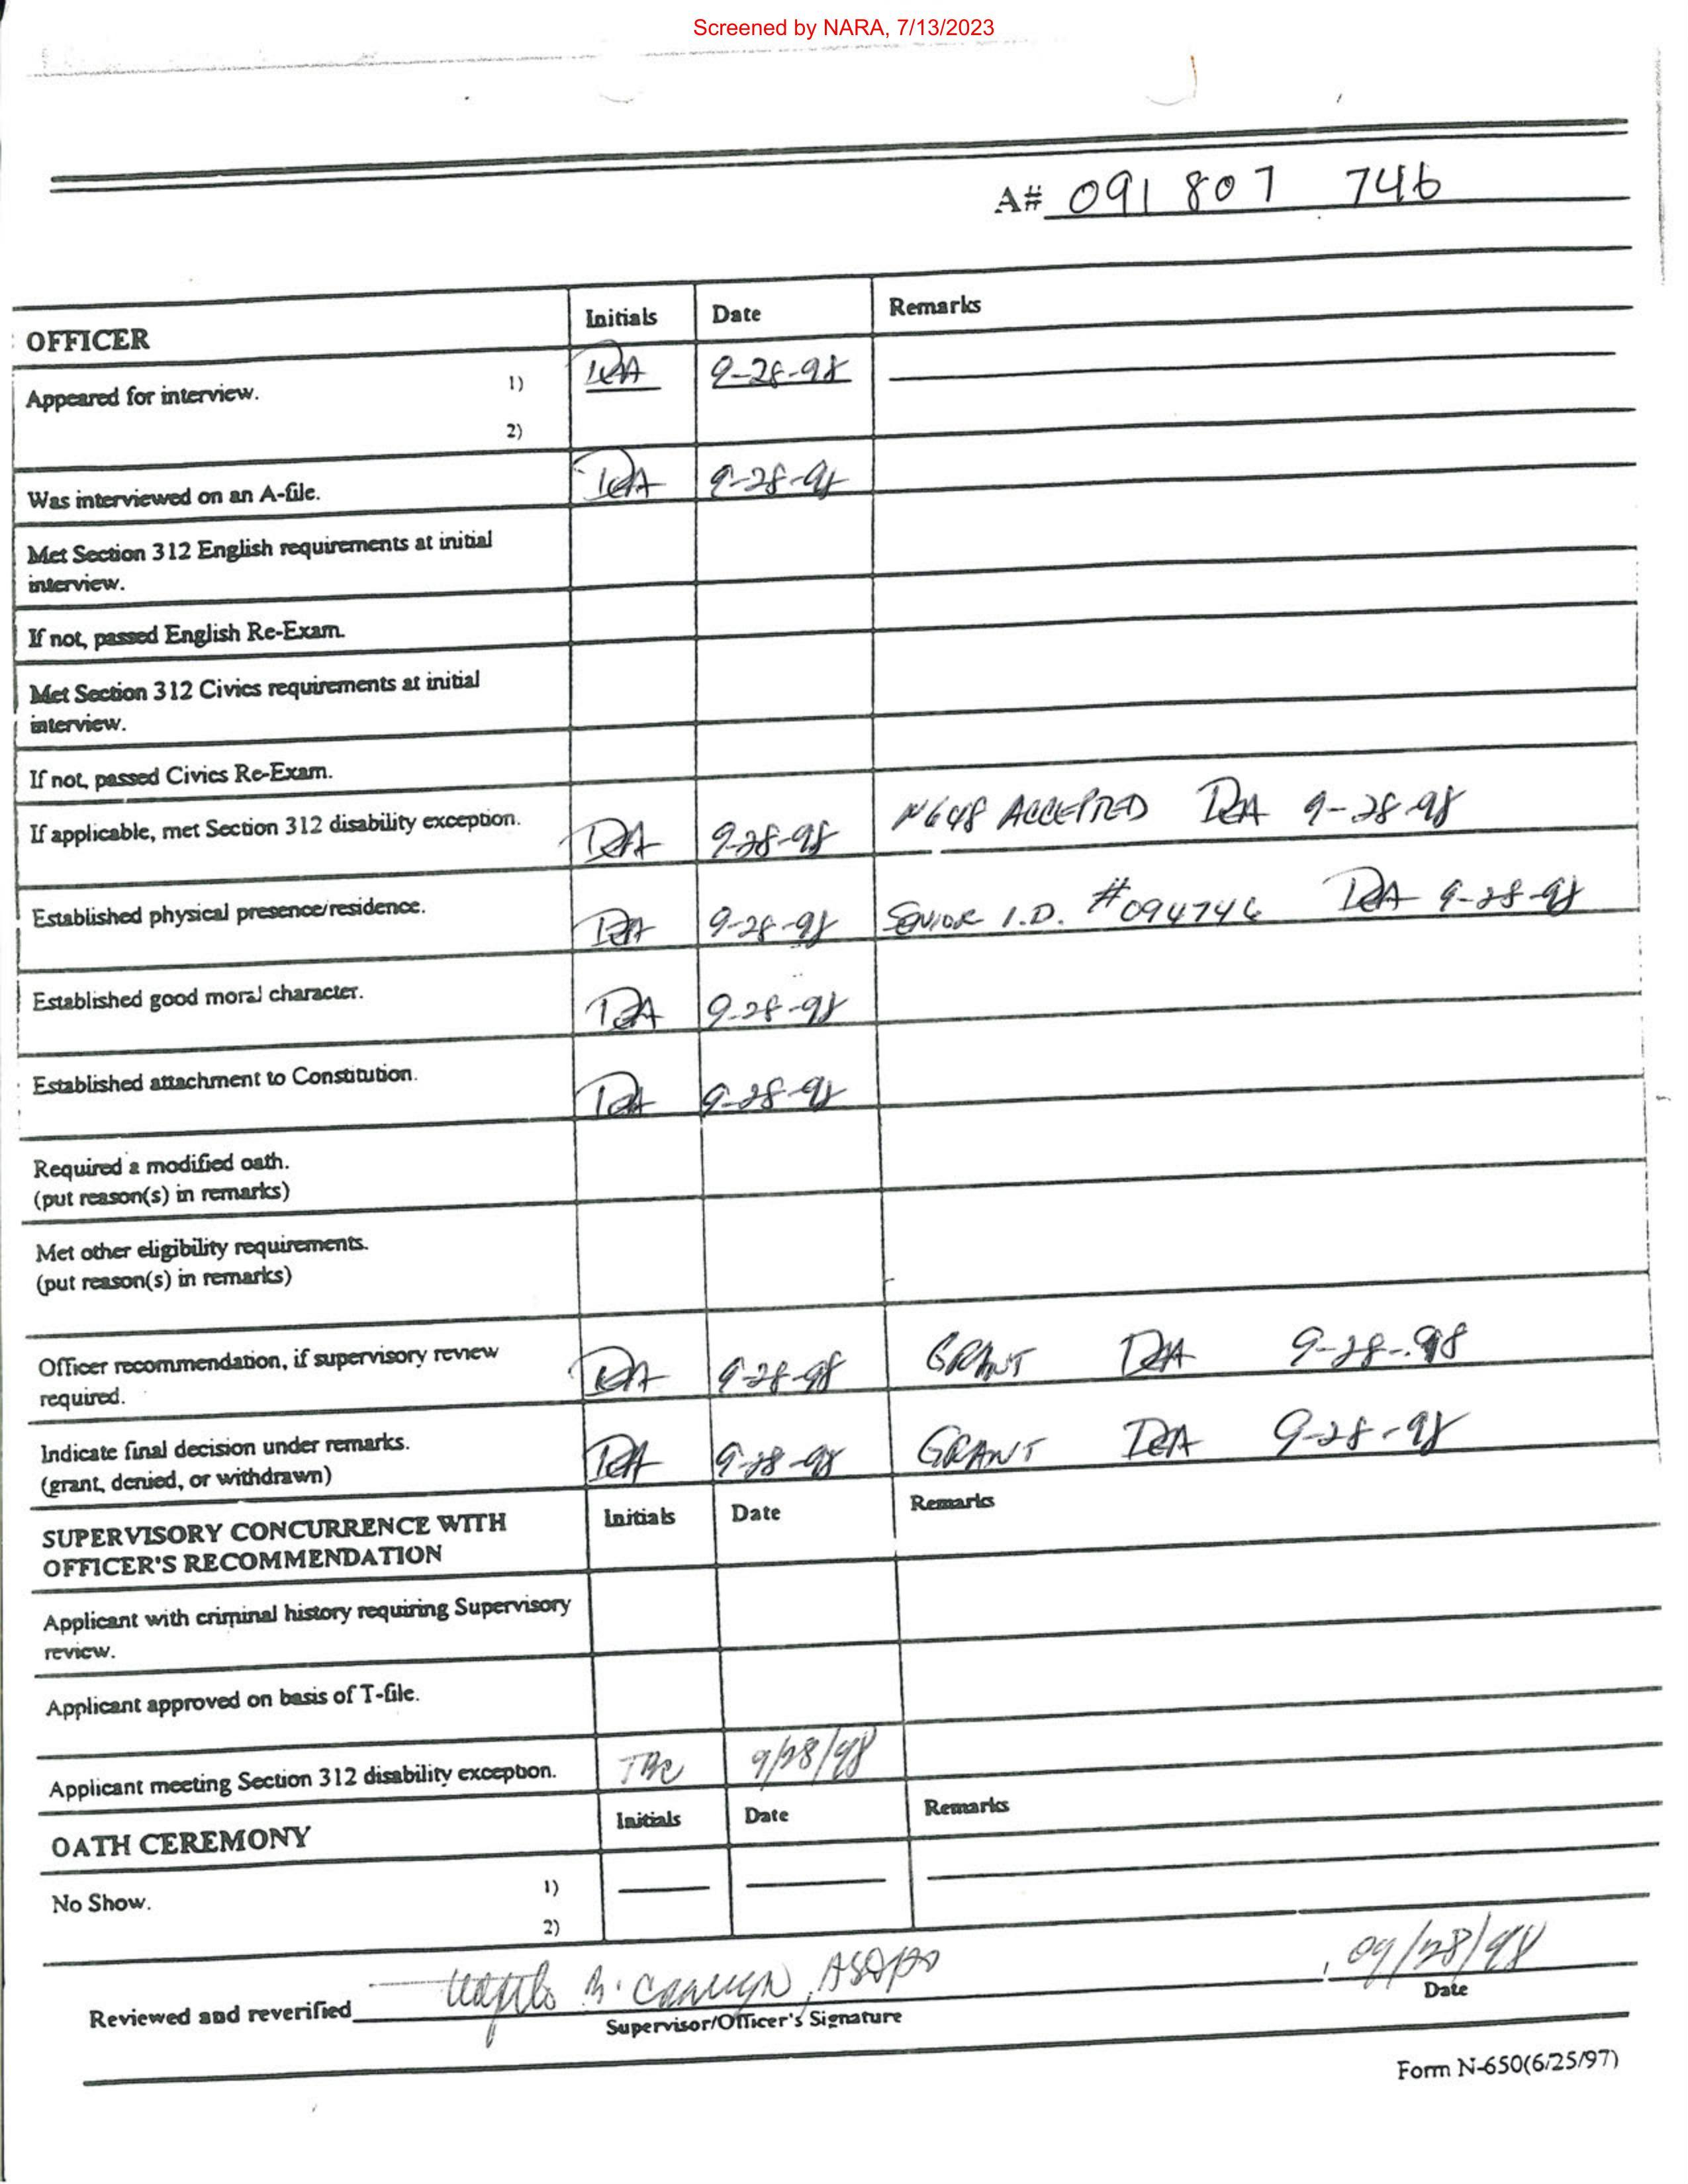 Screened by NARA, 7/13/2023
A# 091 807 746
OFFICER Initials Date Remarks
Appeared for interview. 1) 9-28-98
2)
Was interviewed on an A-file. 9-28-98
Met Section 312 English requirements at initial
interview.
If not, passed English Re-Exam.
Met Section 312 Civics requirements at initial
interview.
If not, passed Civics Re-Exam.
If applicable, met Section 312 disability exception. 9-28-98 N648 ACCEPTED 9-28-98
Established physical presence/residence. 9-28-98 SENIOR I.D. #094746 9-28-98
Established good moral character. 9-28-98
Established attachment to Constitution. 9-28-98
Required a modified oath.
(put reason(s) in remarks)
Met other eligibility requirements.
(put reason(s) in remarks)
Officer recommendation, if supervisory review 9-28-98 GRANT 9-28-98
required.
Indicate final decision under remarks. 9-28-98 GRANT 9-28-98
(grant, denied, or withdrawn)
SUPERVISORY CONCURRENCE WITH Initials Date Remarks
OFFICER'S RECOMMENDATION
Applicant with criminal history requiring Supervisory
review.
Applicant approved on basis of T-file.
Applicant meeting Section 312 disability exception. 9/28/98
OATH CEREMONY Initials Date Remarks
No Show. 1)
2)
Reviewed and reverified 09/28/98
Supervisor/Officer's Signature Date
Form N-650(6/25/97)